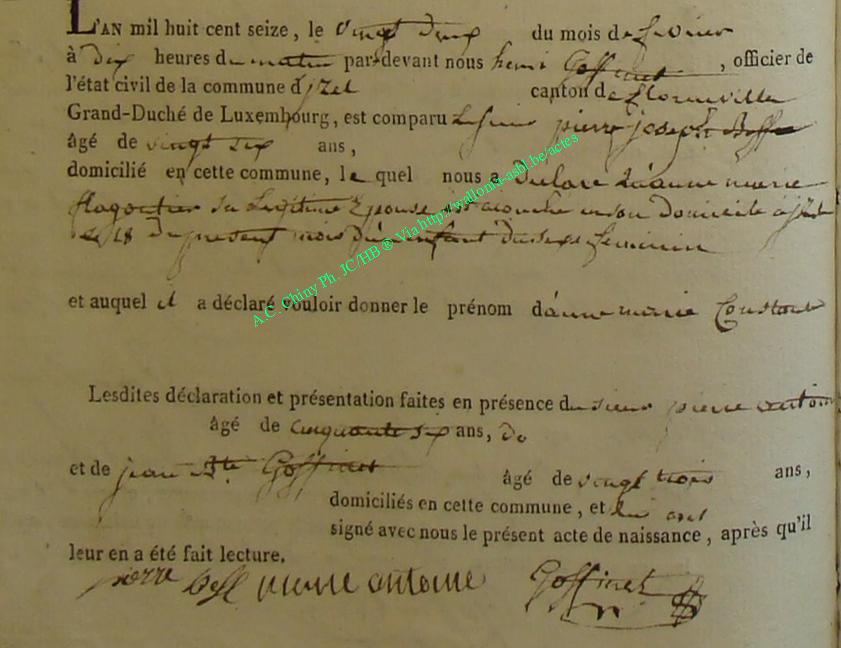 L'AN mil huit cent seize, le vingt deux du mois de fevrier
à dix heures du matin par-devant nous henri Goffinet, officier de
l'état civil de la commune d'izel canton de florenville
Grand-Duché de Luxembourg, est comparu le sieur pierre joseph
âgé de vingt six ans,
domicilié en cette commune, le quel nous a declaré anne marie
sa legitime Epouse est accouchée en son Domicile a
le 18 du present mois d'un enfant du sexe feminin
et auquel il a déclaré vouloir donner le prénom d'anne marie
Lesdites déclaration et présentation faites en présence du sieur pierre antoine
âgé de cinquante six ans, do
et de jean Bte Goffinet âgé de vingt trois ans,
domiciliés en cette commune, et ont
signé avec nous le présent acte de naissance, après qu'il
leur en a été fait lecture.
pierre antoine Goffinet
A.C. Chiny Ph. JC/HB ® Via http://wallonia-asbl.be/actes